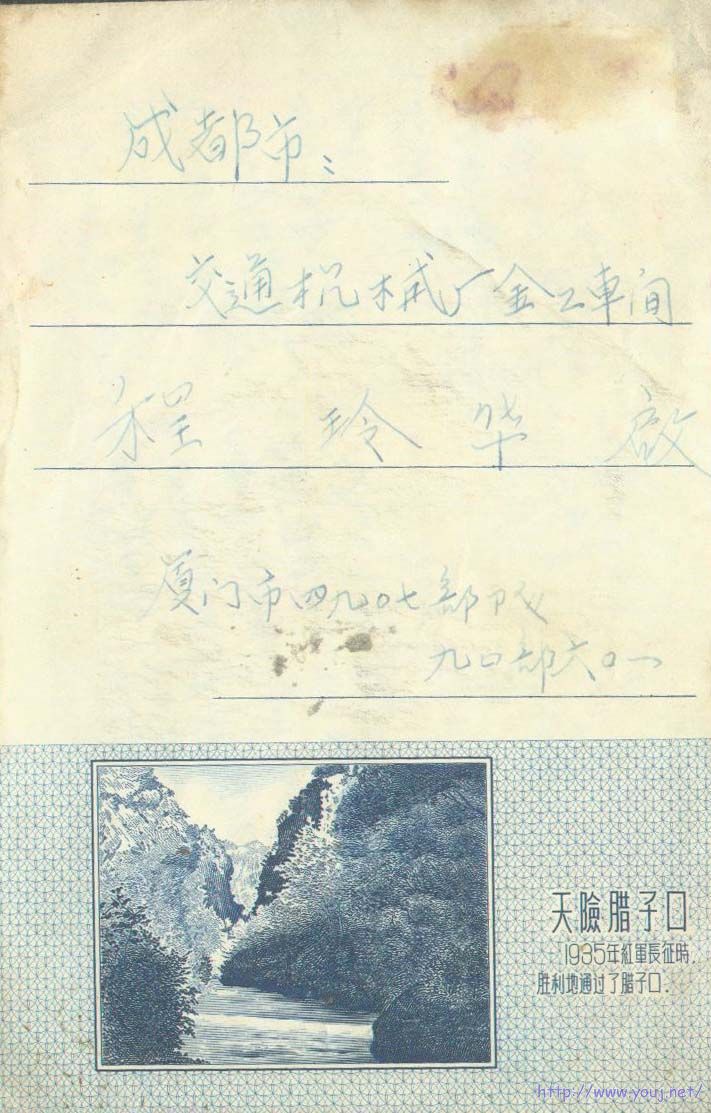 成都市:
交通机械厂金工車间
程玲华啟
厦门市四九0七部队
九0部六0一
天險腊子口
1935年紅軍長征時,
胜利地通过了腊子口.
http://www.youj.net/